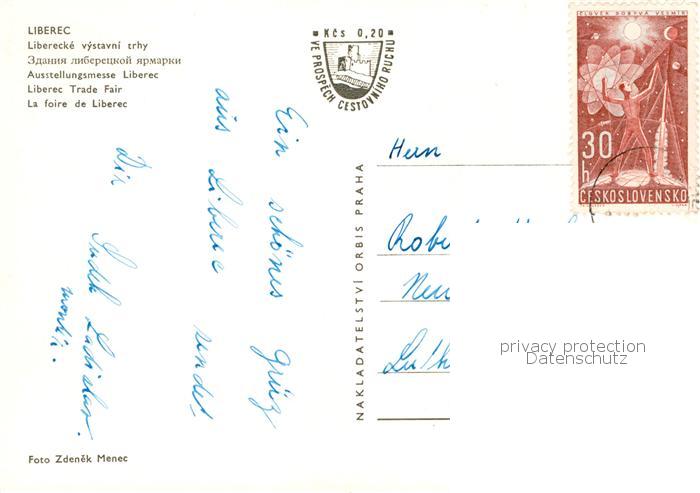 LIBEREC
Liberecké výstavní trhy
Здания либерецкой ярмарки
Ausstellungsmesse Liberec
Liberec Trade Fair
La foire de Liberec
Kčs 0,20
VE PROSPĚCH CESTOVNÍHO RUCHU
ČLOVĚK DOBÝVÁ VESMÍR
30 h
ČESKOSLOVENSKO
Ein schönes grüz
aus Liberec sendet
Dir
Ladislav.
NAKLADATELSTVÍ ORBIS PRAHA
Herrn
Robe
Neu
privacy protection
Datenschutz
Foto Zdeněk Menec